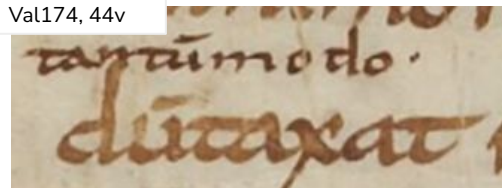 Val174, 44v
tantūmodo ·
dūtaxat